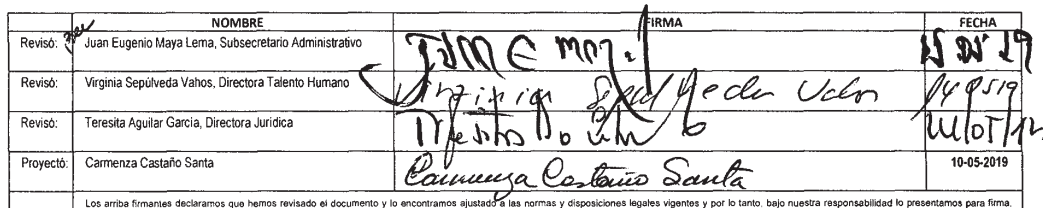 NOMBRE FIRMA FECHA
Revisó: Juan Eugenio Maya Lema, Subsecretario Administrativo
Revisó: Virginia Sepúlveda Vahos, Directora Talento Humano Virginia Sepulveda Vahos
Revisó: Teresita Aguilar García, Directora Jurídica
Proyectó: Carmenza Castaño Santa Carmenza Castaño Santa 10-05-2019
Los arriba firmantes declaramos que hemos revisado el documento y lo encontramos ajustado a las normas y disposiciones legales vigentes y por lo tanto, bajo nuestra responsabilidad lo presentamos para firma.